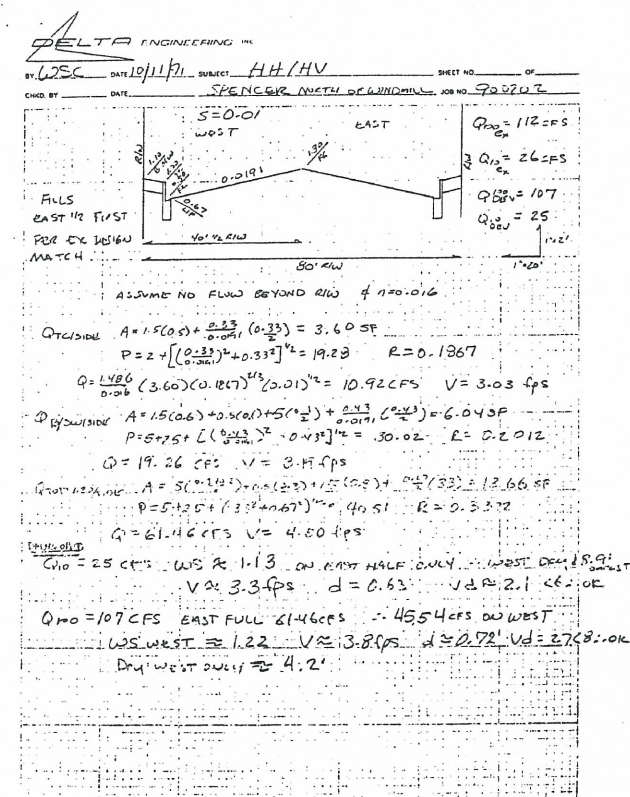 DELTA ENGINEERING INC
BY WSC DATE 10/11/91 SUBJECT HH/HV SHEET NO. OF
CHKD. BY DATE SPENCER NORTH OF WINDMILL JOB NO. 900202
S=0.01
WEST EAST
Q100 EX = 112 CFS
Q10 EX = 26 CFS
Q100 DEV = 107
Q10 DEV = 25
R/W
0.0191
1.30
0.67
LIP
FILLS
EAST 1/2 FIRST
PER EX DESIGN
MATCH
40' 1/2 R/W
80' R/W
1"=2'
1"=20'
ASSUME NO FLOW BEYOND R/W & n=0.016
QTC/SIDE A=1.5(0.5)+ 0.33/0.0191 (0.33/2) = 3.60 SF
P=2+[(0.33/0.0191)²+0.33²]^1/2 = 19.28 R=0.1867
Q= 1.486/0.016 (3.60)(0.1867)^2/3 (0.01)^1/2 = 10.92 CFS V=3.03 fps
A=1.5(0.6)+0.5(0.1)+5(0.1/2)+ 0.43/0.0191 (0.43/2)=6.04 SF
P=5+2.5+[(0.43/0.0191)²+0.43²]^1/2 = 30.02 R=0.2012
Q=19.26 CFS V=3.19 fps
= 13.66 SF
= 40.51 R=0.3372
Q=61.46 CFS V=4.50 fps
Q10 = 25 CFS WS ≈ 1.13 ON EAST HALF ONLY ∴ WEST DRY
V ≈ 3.3 fps d = 0.63 Vd ≈ 2.1 <6 ∴ OK
Q100 = 107 CFS EAST FULL 61.46 CFS ∴ 45.54 CFS ON WEST
WS WEST ≈ 1.22 V ≈ 3.8 fps d ≈ 0.72' Vd = 2.7 <8 ∴ OK
DRY WEST ONLY ≈ 4.2'